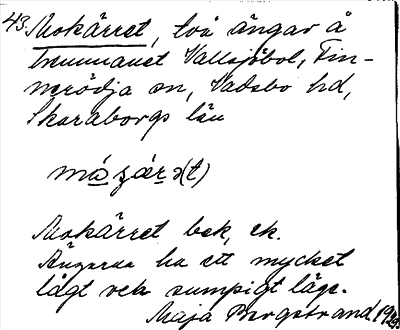 43. Mokärret, två ängar å
hemmanet Vallsjöbol, Fin-
nerödja sn, Vadsbo hd,
Skaraborgs län
Mokärret bek, ek.
Ängarna ha ett mycket
lågt och sumpigt läge.
Maja Bergstrand 1929